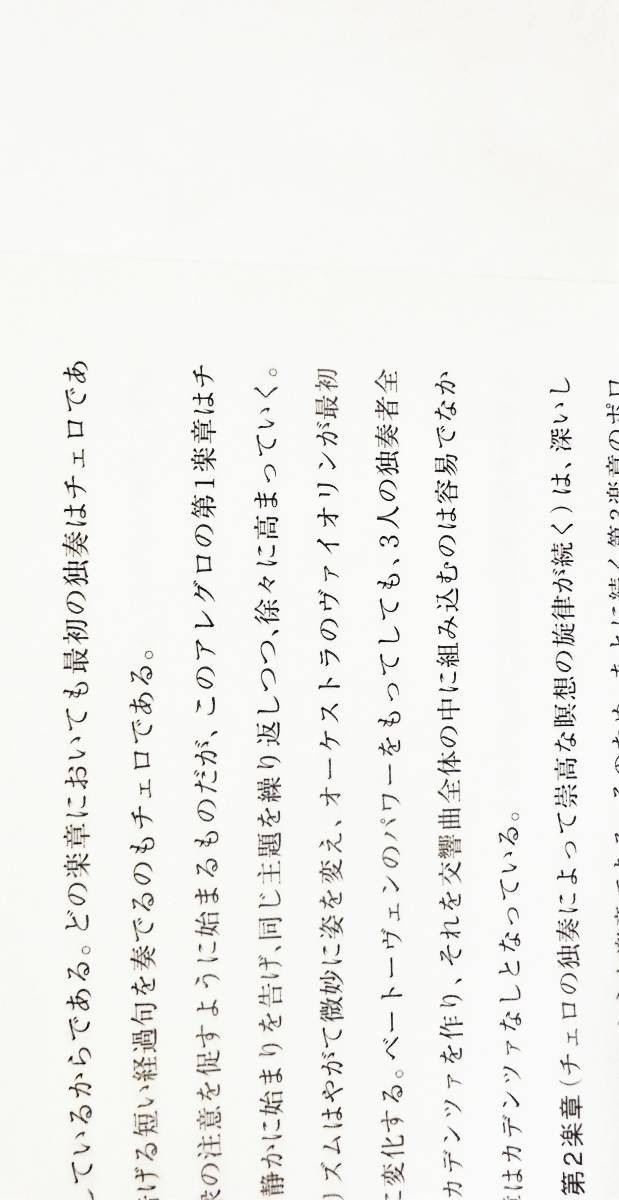 しているからである。どの楽章においても最初の独奏はチェロであ
げる短い経過句を奏でるのもチェロである。
の注意を促すように始まるものだが、このアレグロの第1楽章はチ
静かに始まりを告げ、同じ主題を繰り返しつつ、徐々に高まっていく。
リズムはやがて微妙に姿を変え、オーケストラのヴァイオリンが最初
に変化する。ベートーヴェンのパワーをもってしても、3人の独奏者全
カデンツァを作り、それを交響曲全体の中に組み込むのは容易でなか
はカデンツァなしとなっている。
第2楽章（チェロの独奏によって崇高な瞑想の旋律が続く）は、深いし